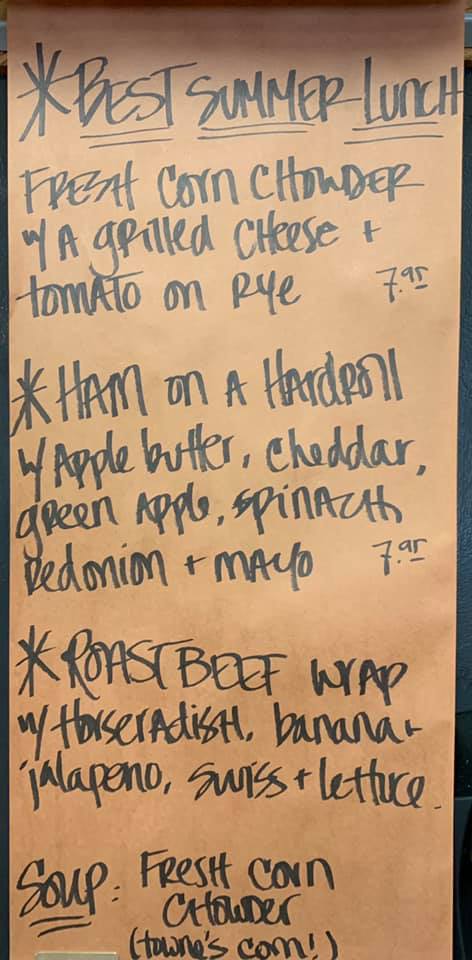 * BEST SUMMER LUNCH
FRESH CORN CHOWDER
w/ A grilled CHeese +
tomATo on RYe 7.95
* HAM on A HARdRoll
w/ Apple butter, cheddar,
green Apple, spinAcH,
Redonion + mAYo 7.95
* ROAST BEEF WRAP
w/ HorserAdisH, banana +
jalapeno, swiss + lettuce.
Soup: FRESH CORN
CHowder
(towne's corn!)